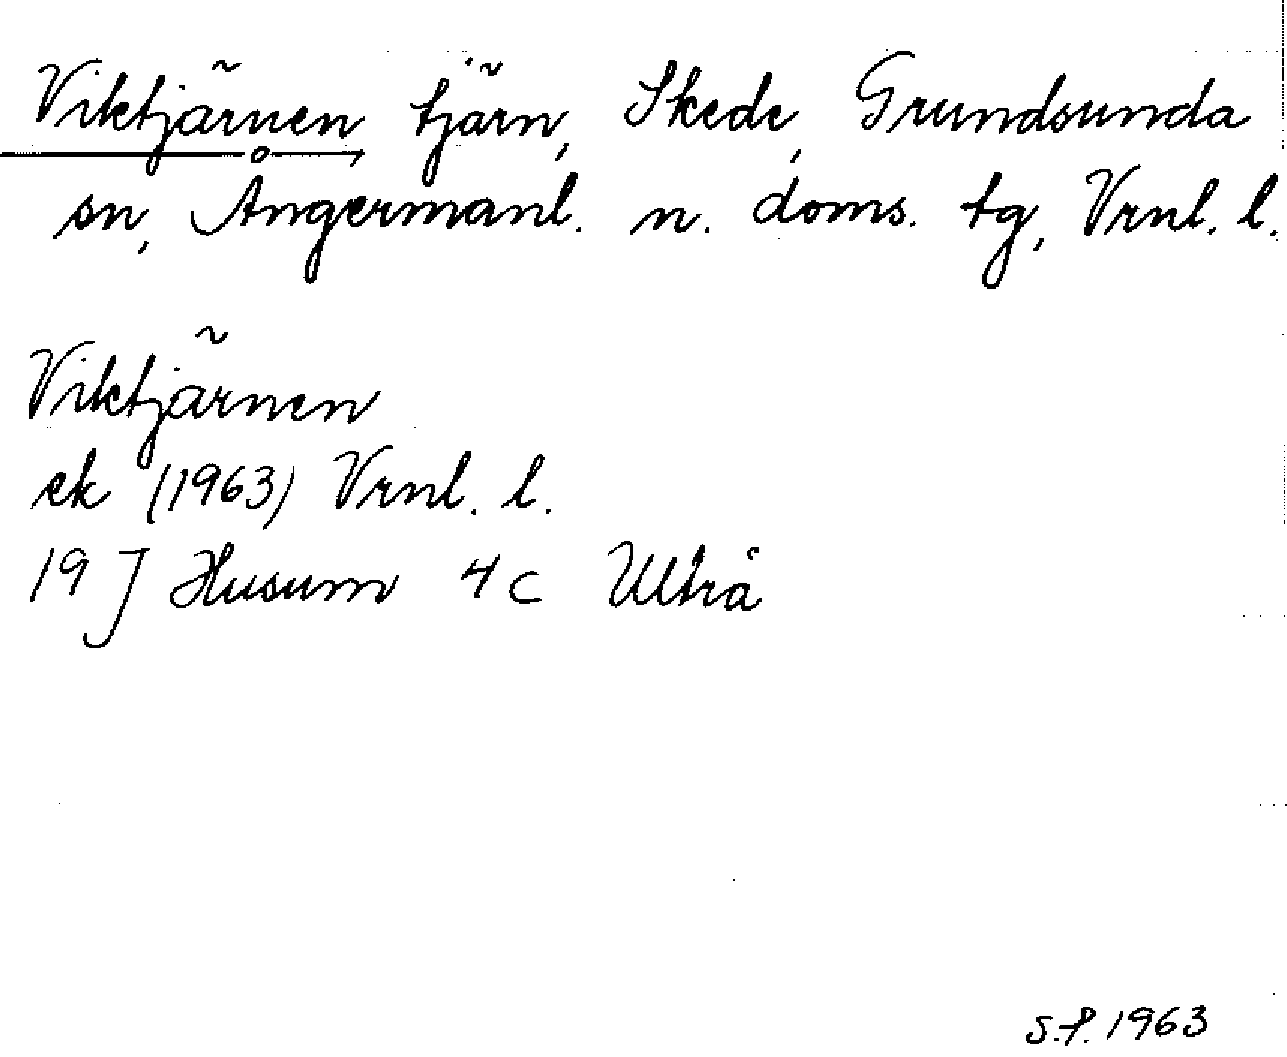 Viktjärnen, tjärn, Skede, Grundsunda
sn, Ångermanl. n. doms. tg, Vrnl. l.
Viktjärnen
ek (1963) Vrnl. l.
19 J Husum 4c Ultrå
S.f. 1963